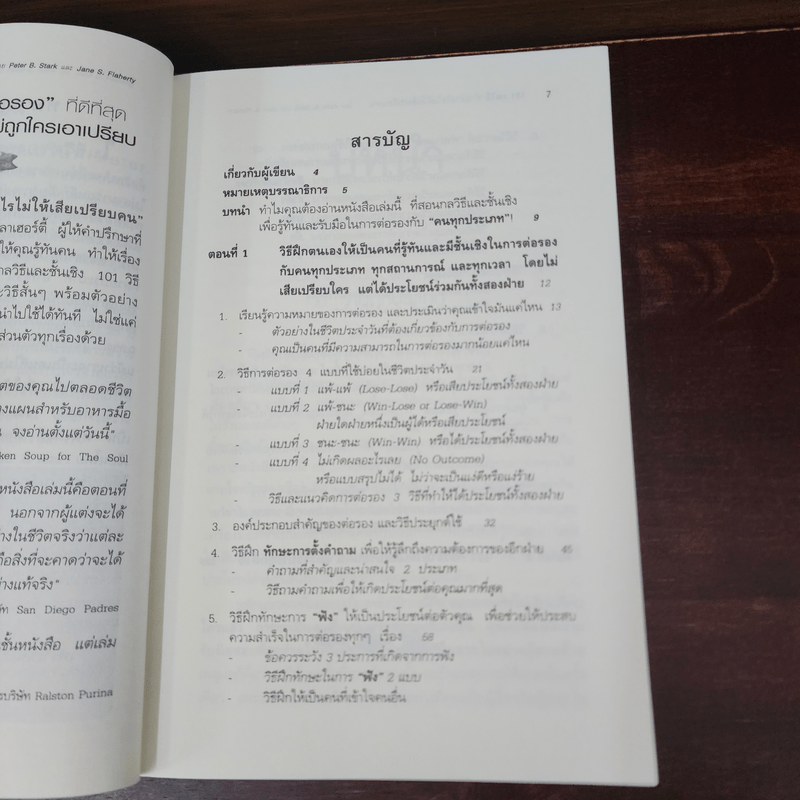 Peter B. Stark และ Jane S. Flaherty
ที่ดีที่สุด
ถูกใครเอาเปรียบ
ไรไม่ให้เสียเปรียบคน"
ลาเฮอร์ตี้ ผู้ให้คำปรึกษาที่
ให้คุณรู้ทันคน ทำให้เรื่อง
กลวิธีและชั้นเชิง 101 วิธี
ะวิธีสั้นๆ พร้อมตัวอย่าง
นำไปใช้ได้ทันที ไม่ใช่แค่
ส่วนตัวทุกเรื่องด้วย
ตของคุณไปตลอดชีวิต
งแผนสำหรับอาหารมื้อ
จงอ่านตั้งแต่วันนี้"
ken Soup for The Soul
หนังสือเล่มนี้คือตอนที่
นอกจากผู้แต่งจะได้
างในชีวิตจริงว่าแต่ละ
ถือสิ่งที่จะคาดว่าจะได้
ย่างแท้จริง"
ษัท San Diego Padres
ชั้นหนังสือ แต่เล่ม
รบริษัท Ralston Purina
7
สารบัญ
เกี่ยวกับผู้เขียน 4
หมายเหตุบรรณาธิการ 5
บทนำ ทำไมคุณต้องอ่านหนังสือเล่มนี้ ที่สอนกลวิธีและชั้นเชิง
เพื่อรู้ทันและรับมือในการต่อรองกับ "คนทุกประเภท"! 9
ตอนที่ 1 วิธีฝึกตนเองให้เป็นคนที่รู้ทันและมีชั้นเชิงในการต่อรอง
กับคนทุกประเภท ทุกสถานการณ์ และทุกเวลา โดยไม่
เสียเปรียบใคร แต่ได้ประโยชน์ร่วมกันทั้งสองฝ่าย 12
1. เรียนรู้ความหมายของการต่อรอง และประเมินว่าคุณเข้าใจมันแค่ไหน 13
- ตัวอย่างในชีวิตประจำวันที่ต้องเกี่ยวข้องกับการต่อรอง
- คุณเป็นคนที่มีความสามารถในการต่อรองมากน้อยแค่ไหน
2. วิธีการต่อรอง 4 แบบที่ใช้บ่อยในชีวิตประจำวัน 21
- แบบที่ 1 แพ้-แพ้ (Lose-Lose) หรือเสียประโยชน์ทั้งสองฝ่าย
- แบบที่ 2 แพ้-ชนะ (Win-Lose or Lose-Win)
ฝ่ายใดฝ่ายหนึ่งเป็นผู้ได้หรือเสียประโยชน์
- แบบที่ 3 ชนะ-ชนะ (Win-Win) หรือได้ประโยชน์ทั้งสองฝ่าย
- แบบที่ 4 ไม่เกิดผลอะไรเลย (No Outcome)
หรือแบบสรุปไม่ได้ ไม่ว่าจะเป็นแง่ดีหรือแง่ร้าย
- วิธีและแนวคิดการต่อรอง 3 วิธีที่ทำให้ได้ประโยชน์ทั้งสองฝ่าย
3. องค์ประกอบสำคัญของต่อรอง และวิธีประยุกต์ใช้ 32
4. วิธีฝึก ทักษะการตั้งคำถาม เพื่อให้รู้ลึกถึงความต้องการของอีกฝ่าย 45
- คำถามที่สำคัญและน่าสนใจ 2 ประเภท
- วิธีถามคำถามเพื่อให้เกิดประโยชน์ต่อคุณมากที่สุด
5. วิธีฝึกทักษะการ "ฟัง" ให้เป็นประโยชน์ต่อตัวคุณ เพื่อช่วยให้ประสบ
ความสำเร็จในการต่อรองทุกๆ เรื่อง 58
- ข้อควรระวัง 3 ประการที่เกิดจากการฟัง
- วิธีฝึกทักษะในการ "ฟัง" 2 แบบ
- วิธีฝึกให้เป็นคนที่เข้าใจคนอื่น